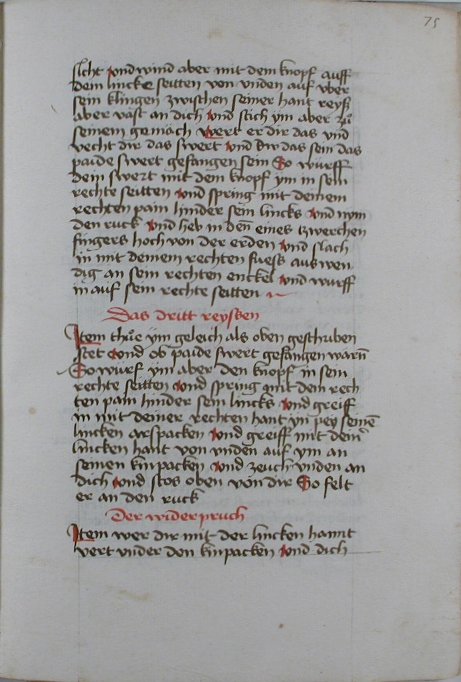 75
sicht vnd wind aber mit dem knopf auff
dem lincke seitten von vnden auf vber
sein klingen zwischen seiner hant reyß
aber vast an dich vnd stich ym aber zů
seinem gemäch wert er dir das vnd
vecht dir das swert vnd kw das sein das
paide swert gefangen sein So wurff
dein swert mit dem knopf ym in sein
rechte seitten vnd spring mit deinem
rechten pain hinder sein lincks vnd nym
den ruck vnd heb in den eines tzwerchen
fingers hoch von der erden vnd slach
in mit deinem rechten fuess aus wen
dig an sein rechten enckel vnd wurff
in auf sein rechte seitten
Das dritt reyssen
Item thue ym geleich als oben geschriben
stet vnd ob paide swert gefangen warn̄
So würf ym aber den knopf in sein
rechte seitten vnd spring mit dem rech
ten pain hinder sein lincks vnd greiff
in mit deiner rechten hant yn pey seinē
lincken arspacken vnd greiff mit dein̄
lincken hant von vnden auf ym an
seinen kinpacken vnd zeuch vnden an
dich vnd stos oben von dir So felt
er an den ruck
Der widerpruch
Item wer dir mit der lincken hannt
vert vnder den kinpacken vnd dich